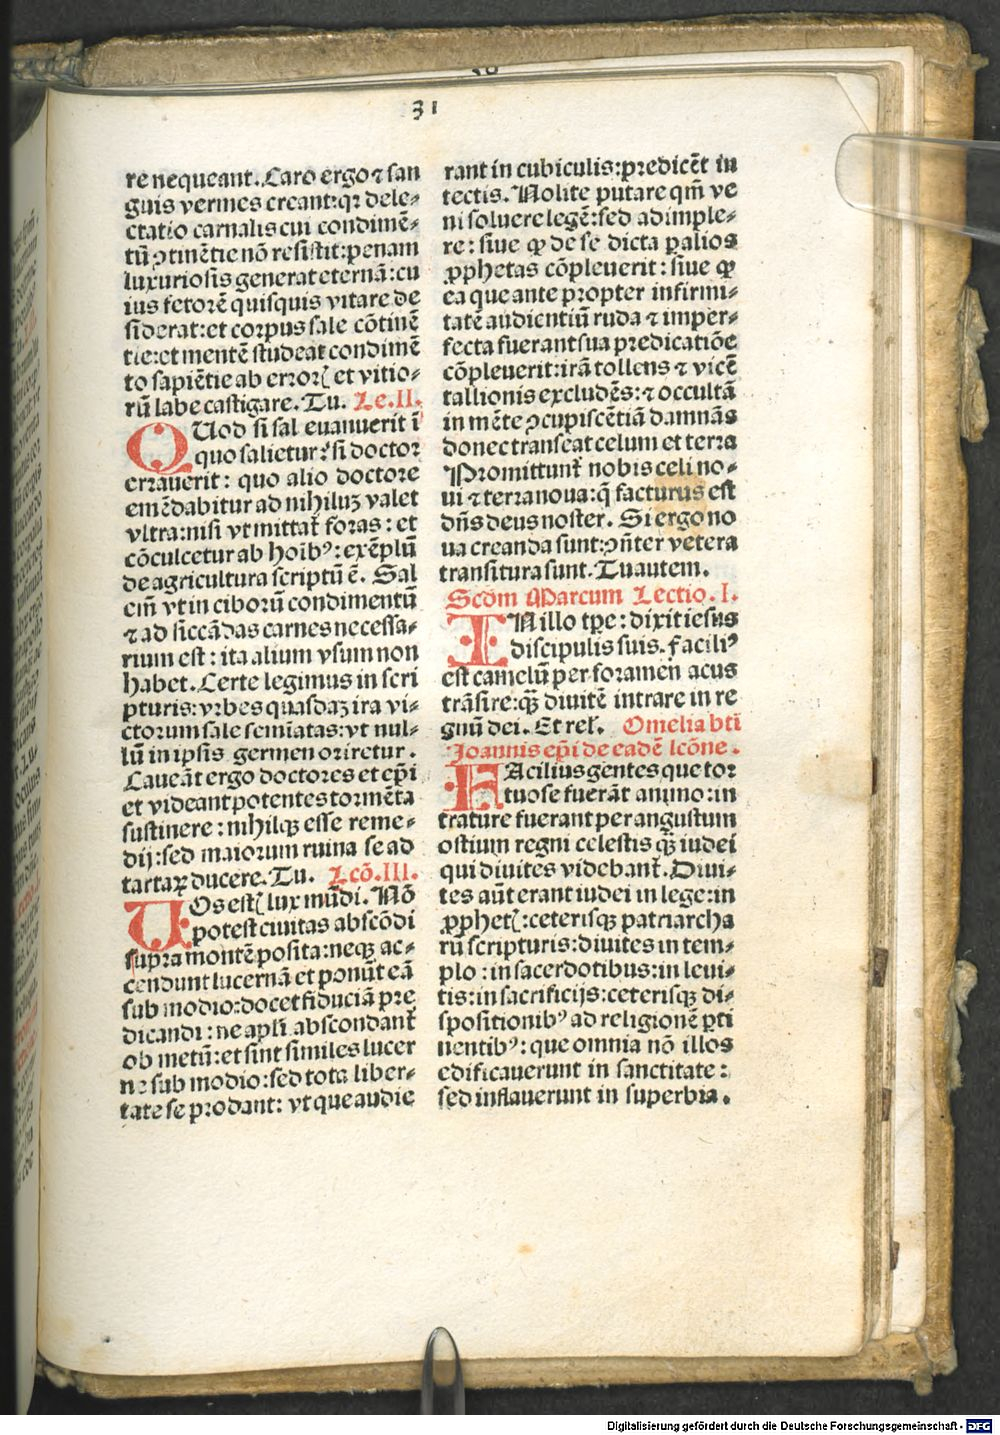 31
re nequeant. Caro ergo ⁊ san
guis vermes creant: qꝛ dele⸗
ctatio carnalis cui condimē⸗
tū ꝯtinētie nō resistit: penam
luxuriosis generat eternā: cu
ius fetorē quisquis vitare de
siderat: et corpus sale cōtinē
tie: et mentē studeat condimē
to sapiētie ab erroꝝ et vitio⸗
rū labe castigare. Tu. Le. II.
QUod si sal euanuerit ī
quo salietur? si doctor
errauerit: quo alio doctore
emēdabitur ad nihiluꝫ valet
vltra: nisi vt mittat̄ foras: et
cōculcetur ab hoībꝰ: exēplū
de agricultura scriptū ē. Sal
em̄ vt in ciborū condimentū
⁊ ad siccādas carnes necessa⸗
rium est: ita alium vsum non
habet. Certe legimus in scri
pturis: vrbes quasdaꝫ ira vi⸗
ctorum sale semiatas: vt nul⸗
lū in ipsis germen oriretur.
Caueāt ergo doctores et ep̄i
et videant potentes tormēta
sustinere: nihilqꝫ esse reme⸗
dij: sed maiorum ruina se ad
tartaꝝ ducere. Tu. Lcō. III.
UOs estꝭ lux mūdi. Nō
potest ciuitas abscōdi
supra montē posita: neqꝫ ac⸗
cendunt lucernā et ponūt eā
sub modio: docet fiduciā pre
dicandi: ne apl̄i abscondant̄
ob metū: et sint similes lucer
ne sub modio: sed tota liber⸗
tate se prodant: vt que audie
rant in cubiculis: predicēt in
tectis. Nolite putare qm̄ ve
ni soluere legē: sed adimple⸗
re: siue ꝙ de se dicta ꝑ alios
ꝓphetas cōpleuerit: siue ꝙ
ea que ante propter infirmi⸗
tatē audientiū ruda ⁊ imper⸗
fecta fuerant sua predicatiōe
cōpleuerit: irā tollens ⁊ vicē
tallionis excludēs: ⁊ occultā
in mēte ꝯcupiscētiā damnās
donec transeat celum et terra
Promittunt̄ nobis celi no⸗
ui ⁊ terra noua: q̄ facturus est
dn̄s deus noster. Si ergo no
ua creanda sunt: ꝯn̄ter vetera
transitura sunt. Tu autem.
Scd̄m Marcum Lectio. I.
IN illo tpe: dixit iesus
discipulis suis. faciliꝰ
est camelū per foramen acus
trāsire: qꝫ diuitē intrare in re
gnū dei. Et relꝭ. Omelia bti
Joannis ep̄i de eadē lcōne.
FAcilius gentes que tor
tuose fuerāt animo: in
trature fuerant per angustum
ostium regni celestis qꝫ iudei
qui diuites videbant̄. Diui⸗
tes aūt erant iudei in lege: in
ꝓphetꝭ: ceterisqꝫ patriarcha
rū scripturis: diuites in tem⸗
plo: in sacerdotibus: in leui⸗
tis: in sacrificijs: ceterisqꝫ di⸗
spositionibꝰ ad religionē ꝑti
nentibꝰ: que omnia nō illos
edificauerunt in sanctitate:
sed inflauerunt in superbia.
Digitalisierung gefördert durch die Deutsche Forschungsgemeinschaft - DFG